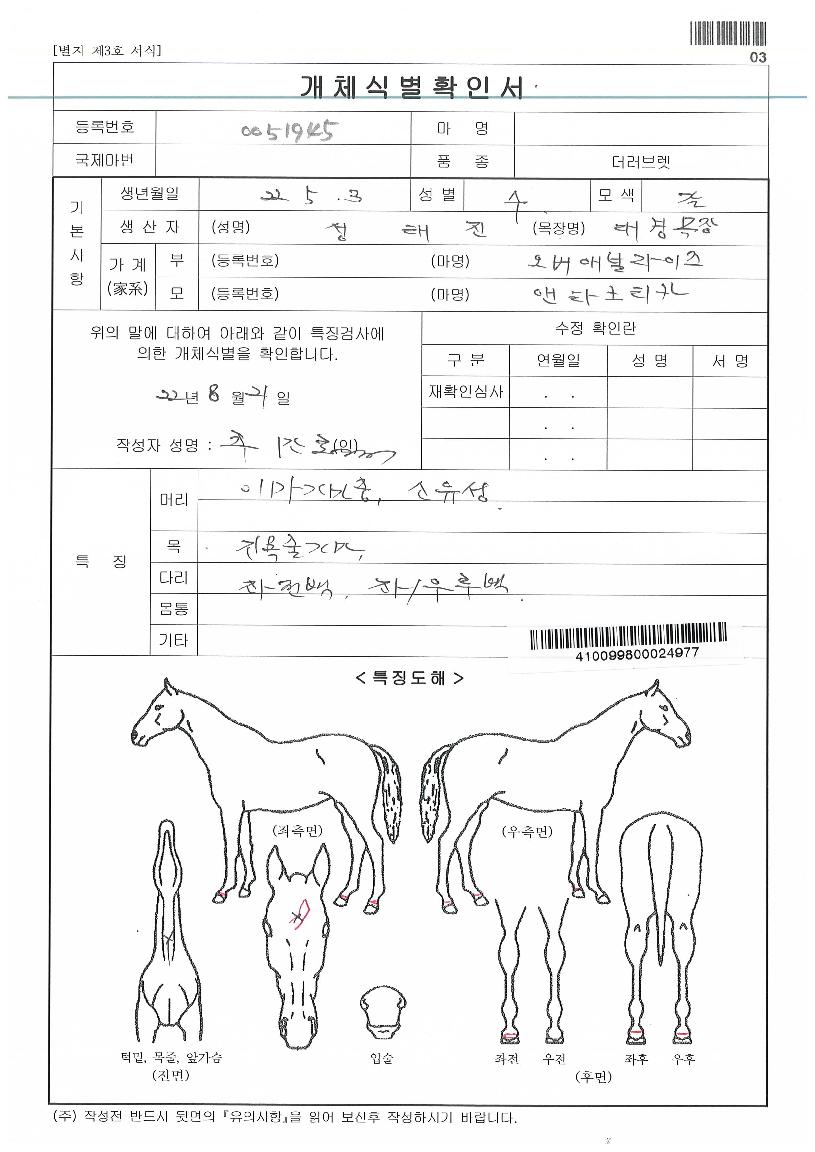 [별지 제3호 서식]
03
개체식별확인서
등록번호 0051945 마 명
국제마번 품 종 더러브렛
기본사항
생년월일 22 5 . 3 성 별 수 모 색 갈
생 산 자 (성명) 정 태 진 (목장명) 태경목장
가 계 (家系) 부 (등록번호) (마명) 오버애널라이즈
모 (등록번호) (마명)
위의 말에 대하여 아래와 같이 특징검사에
의한 개체식별을 확인합니다.
22년 8월 21일
작성자 성명 : (인)
수정 확인란
구 분 연월일 성 명 서 명
재확인심사 . .
. .
. .
특 징
머리
목
다리
몸통
기타
410099800024977
<특징도해>
(좌측면) (우측면)
턱밑, 목줄, 앞가슴 입술 좌전 우전 좌후 우후
(전면) (후면)
(주) 작성전 반드시 뒷면의 『유의사항』을 읽어 보신후 작성하시기 바랍니다.